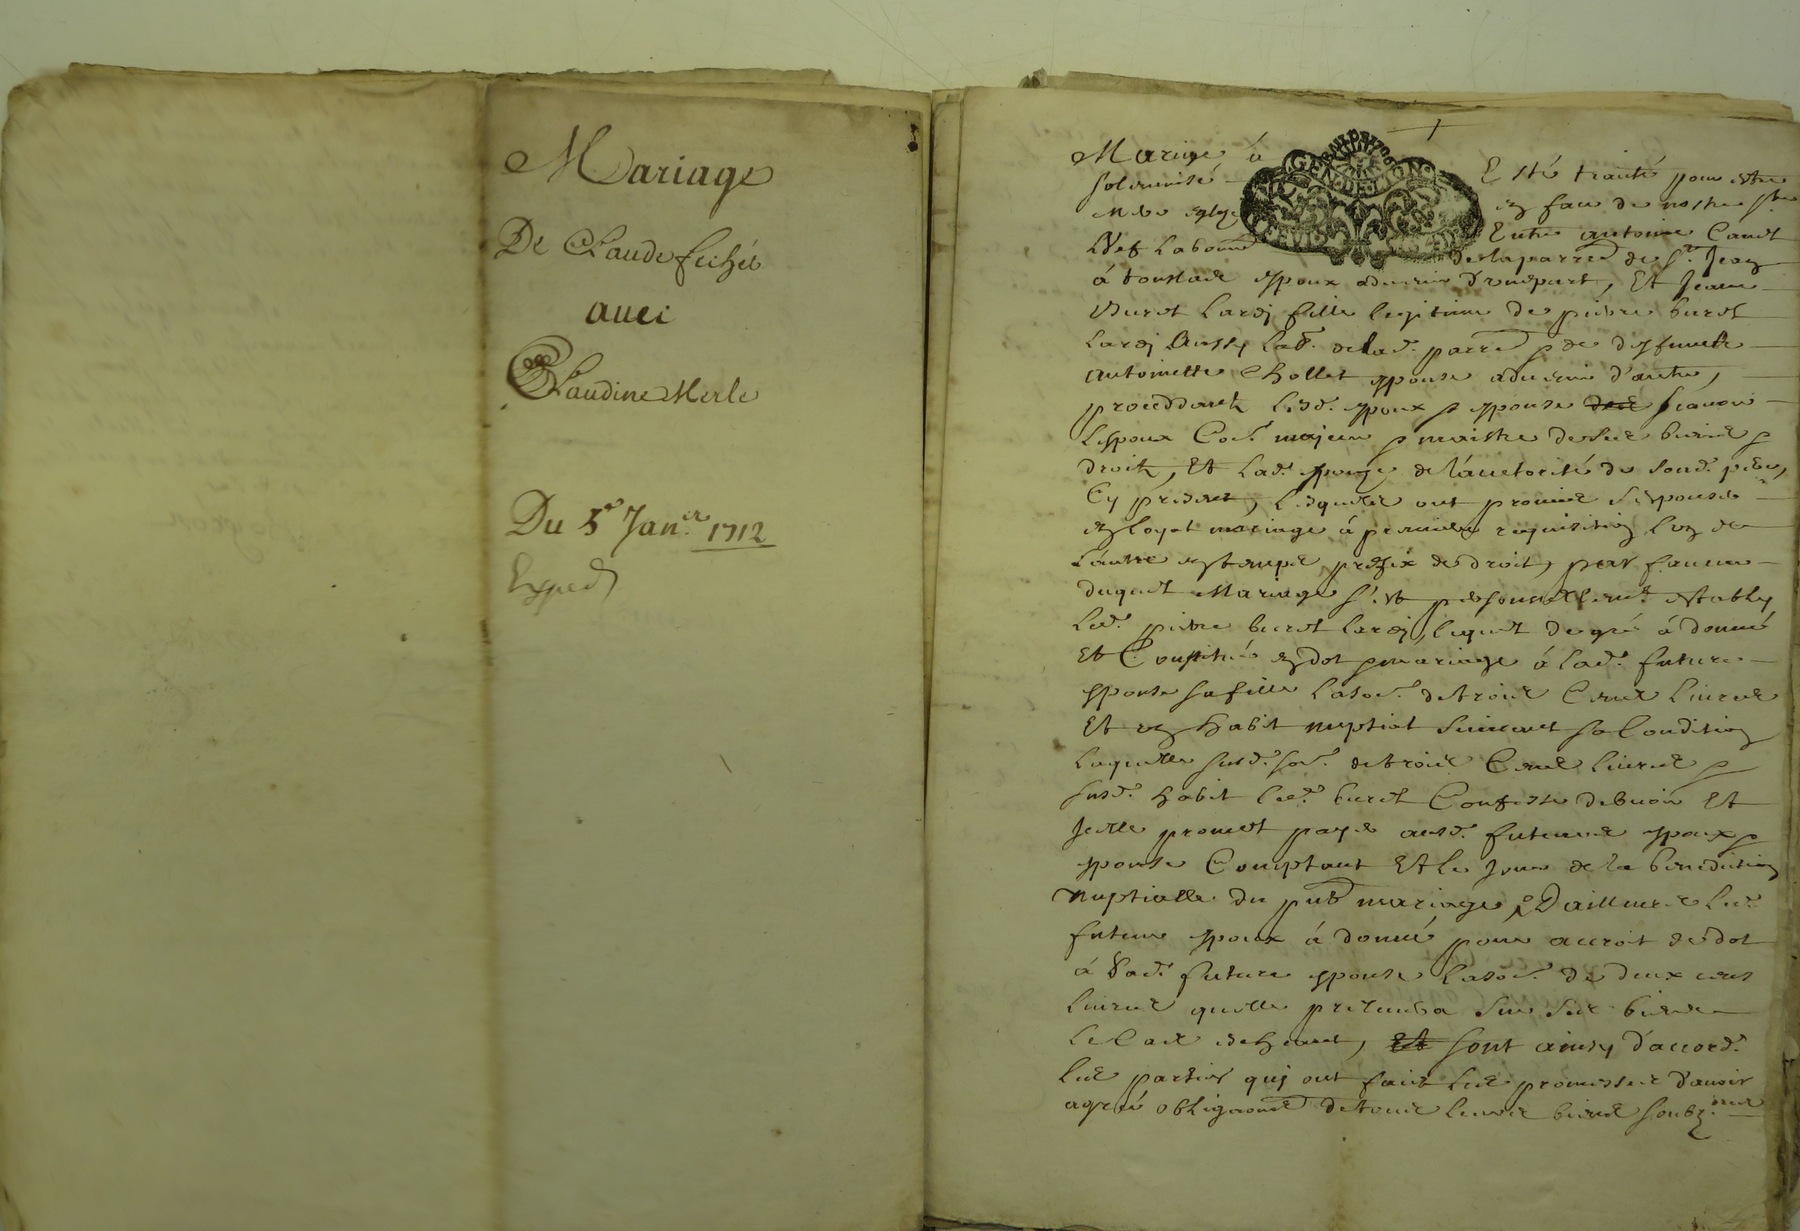 Mariage
De Claude fichés
auec
Claudine Merle
Du 5e Janer 1712
Exped
Mariage à Esté traité pour estre
solemnisé en face de nostre Ste
mere eglize Entre antoine Canet
à toussaie espoux aduenir d'unepart, Et Jeanne
Buret Lardj fille legitime de pierre buret
Lardj Aussy Lab. delad. parre & de deffuncte
antoinette Chollet espouse aduenir d'autre,
proceddant lesd. espoux & espouse
Lespoux Co.e majeur & maistre deses biens &
droits, Et lad. espouze de l'auctorité de sond. pere,
Cy present, lesquels ont promis s'espouser
en loyal mariage à premiere requisition lun de
l'autre en temps prefix de droit, par faueur
duquel Mariage s'est personnellemt estably
led. pierre buret lardj, lequel de gré à donné
Et Constitué en dot & mariage à lad. future
espouse sa fille lasoe. detrois Cent liures
Et un habit nuptial suiuant sa Condition
laquelle susd. soe. de trois Cent liures &
susd. habit led. buret Confesse debuoir Et
Jcelle promet payer ausd. futeurs espoux &
espouse Comptant Et le Jour de la benediction
nuptialle du pnt mariage, & D'ailleurs led.
futeur espoux à donné pour accroit de dot
à lad. future espouse lasoe. de deux cens
liures quelle prelevera sur ses biens
le Cas escheant, Et sont ainsy d'accord.
les parties quj ont fait les promesses d'auoir
agréé obligaons detous leurs biens soubz.ons